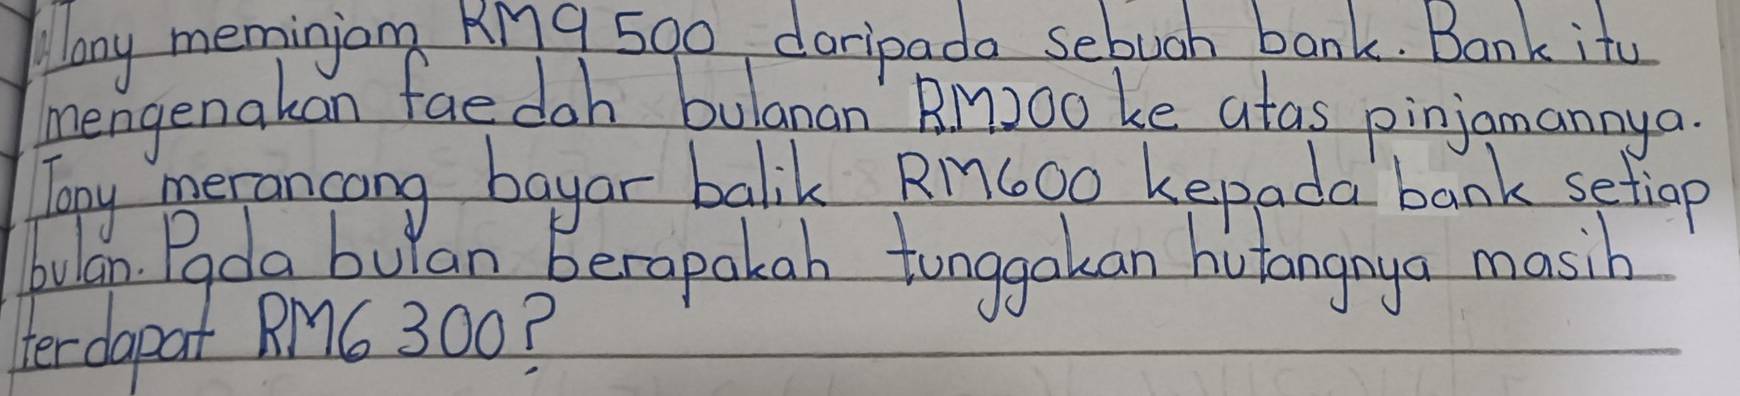 Tony meminjam RM9 500 daripada sebuah bank. Bank itu
mengenakan faedah bulanan RM200 ke atas pinjamannya.
Tony merancang bayar balik RM600 kepada bank setiap
bulan. Pada bulan berapakah tunggakan hutangnya masih
terdapat RM6 300?